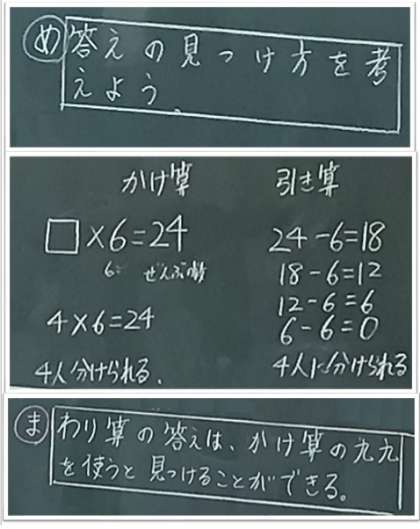 め 答えの見つけ方を考
えよう。
かけ算
□×6=24
6= ぜんぶの数
4×6=24
4人分けられる。
引き算
24-6=18
18-6=12
12-6=6
6-6=0
4人に分けられる
ま わり算の答えは、かけ算の九九
を使うと見つけることができる。